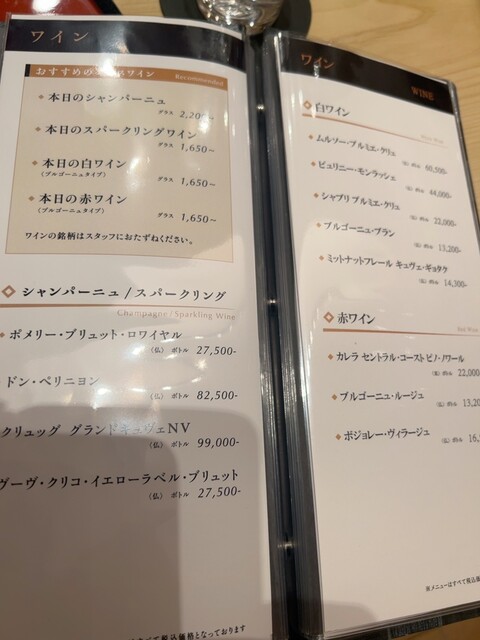 ワイン
おすすめの
ワイン
Recommended
本日のシャンパーニュ
グラス 2,200~
本日のスパークリングワイン
グラス 1,650~
本日の白ワイン
(ブルゴーニュタイプ) グラス 1,650~
本日の赤ワイン
(ブルゴーニュタイプ) グラス 1,650~
ワインの銘柄はスタッフにおたずねください。
シャンパーニュ/スパークリング
Champagne/Sparkling Wine
ポメリー・ブリュット・ロワイヤル
(仏) ボトル 27,500-
ドン・ペリニヨン
(仏) ボトル 82,500-
クリュッグ グランドキュヴェNV
(仏) ボトル 99,000-
ヴーヴ・クリコ・イエローラベル・ブリュット
(仏) ボトル 27,500-
税込価格となっております
ワイン
WINE
白ワイン
White Wine
ムルソー・プルミエ・クリュ
(仏) ボトル 60,500-
ピュリニー・モンラッシェ
(仏) ボトル 44,000-
シャブリ プルミエ・クリュ
(仏) ボトル 22,000-
ブルゴーニュ・ブラン
(仏) ボトル 13,200-
ミットナットフレール キュヴェ・ギョタク
(仏) ボトル 14,300-
赤ワイン
Red Wine
カレラ セントラル・コースト ピノ・ノワール
(米) ボトル 22,000
ブルゴーニュ・ルージュ
(仏) ボトル 13,20
ボジョレー・ヴィラージュ
(仏) ボトル 16,
※メニューはすべて税込価